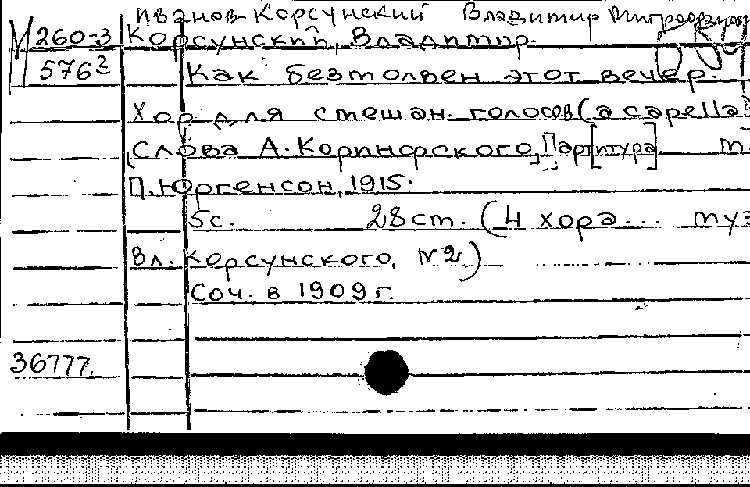 Иванов-Корсунский Владимир
М 260-3 Корсунский, Владимир.
576² Как безмолвен этот вечер.
Хор для смешан. голосов (a capella)
[Слова А. Коринфского] Парт[итура] м.
П. Юргенсон, 1915.
5с. 28 см. (4 хора... муз
Вл. Корсунского, №2.)
Соч. в 1909 г.
36777.